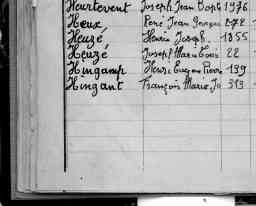 Heurtevent Joseph Jean Bapt 1976
Heux René Jean Georges 272
Heuzé Henri Joseph 1855
Heuzé Joseph Marie Louis 22
Hingamp Henri Eugène Pierre 139
Hingant François Marie Jo 313